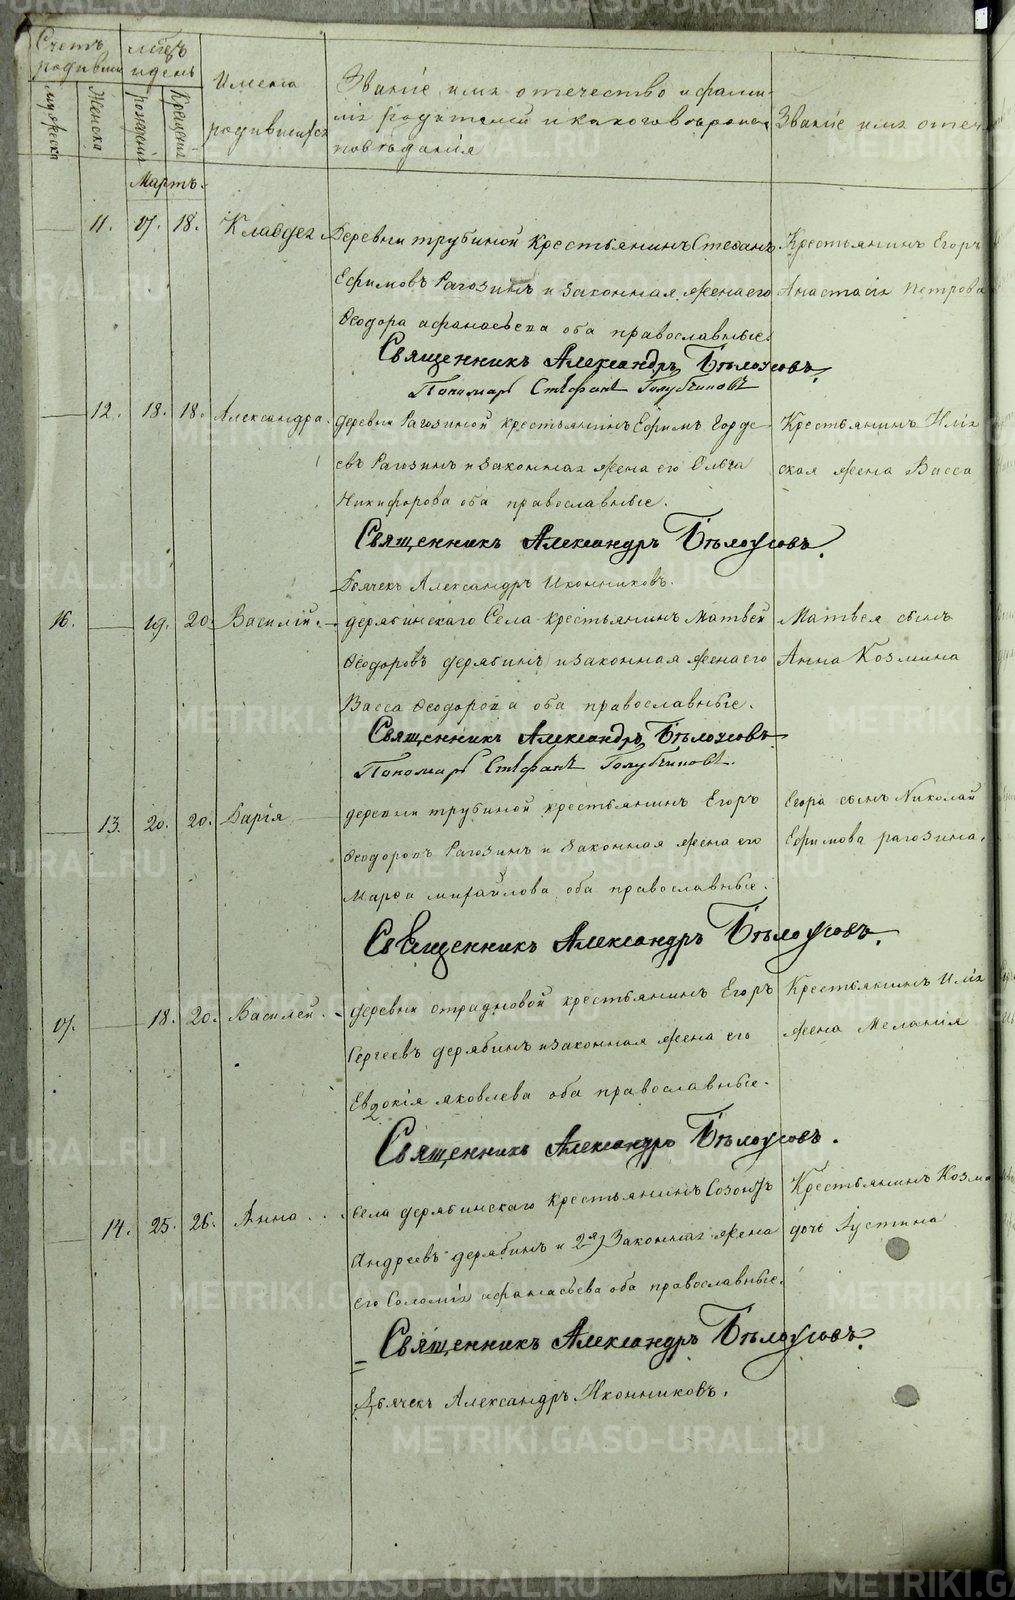 Счетъ родивших
мужеска
женска
мѣсяцъ и день
рожденія
крещенія
Имена родившихся
Званіе имя отечество и фами-
лія родителей и какого вѣроис-
повѣданія
Званіе имя отече
Мартъ.
11. 17. 18. Клавдея Деревни трубиной крестьянинъ Стефанъ
Ефимовъ Рагозинъ и законная жена его
Ѳеодора афанасьева оба православные.
Крестьянинъ Егоръ
Анастасія Петрова
Священникъ Александръ Бѣлоусовъ.
Пономарь Стефанъ Голубчиковъ
12. 18. 18. Александра. деревни Рагозиной крестьянинъ Ефимъ Горде
евъ Рагозинъ и законная жена его Ольга
Никифорова оба православные.
Крестьянинъ Илія
ская жена Васса
Священникъ Александръ Бѣлоусовъ.
Дьячекъ Александръ Иконниковъ.
16. 19. 20. Василій. дерябинскаго Села крестьянинъ Матвей
Ѳеодоровъ дерябинъ и законная жена его
Васса Ѳеодорова оба православные.
Матвея сынъ
Анна Козмина
Священникъ Александръ Бѣлоусовъ
Пономарь Стефанъ Голубчиковъ.
13. 20. 20. Дарія деревни трубиной крестьянинъ Егоръ
Ѳеодоровъ Рагозинъ и законная жена его
Марѳа михайлова оба православные.
Егора сынъ Николай
Ефимова рагозина.
Священникъ Александръ Бѣлоусовъ.
17. 18. 20. Василей. деревни отрадновой крестьянинъ Егоръ
Сергеевъ дерябинъ и законная жена его
Евдокія яковлева оба православные.
Крестьянинъ Илія
жена Меланія
Священникъ Александръ Бѣлоусовъ.
14. 25. 26. Анна. села дерябинскаго крестьянинъ Созонтъ
Андреевъ дерябинъ и 2я) Законная жена
его Соломія афанасьева оба православные.
Крестьянинъ Козма
дочь Аустина
Священникъ Александръ Бѣлоусовъ.
Дьячекъ Александръ Иконниковъ.
METRIKI.GASO-URAL.RU